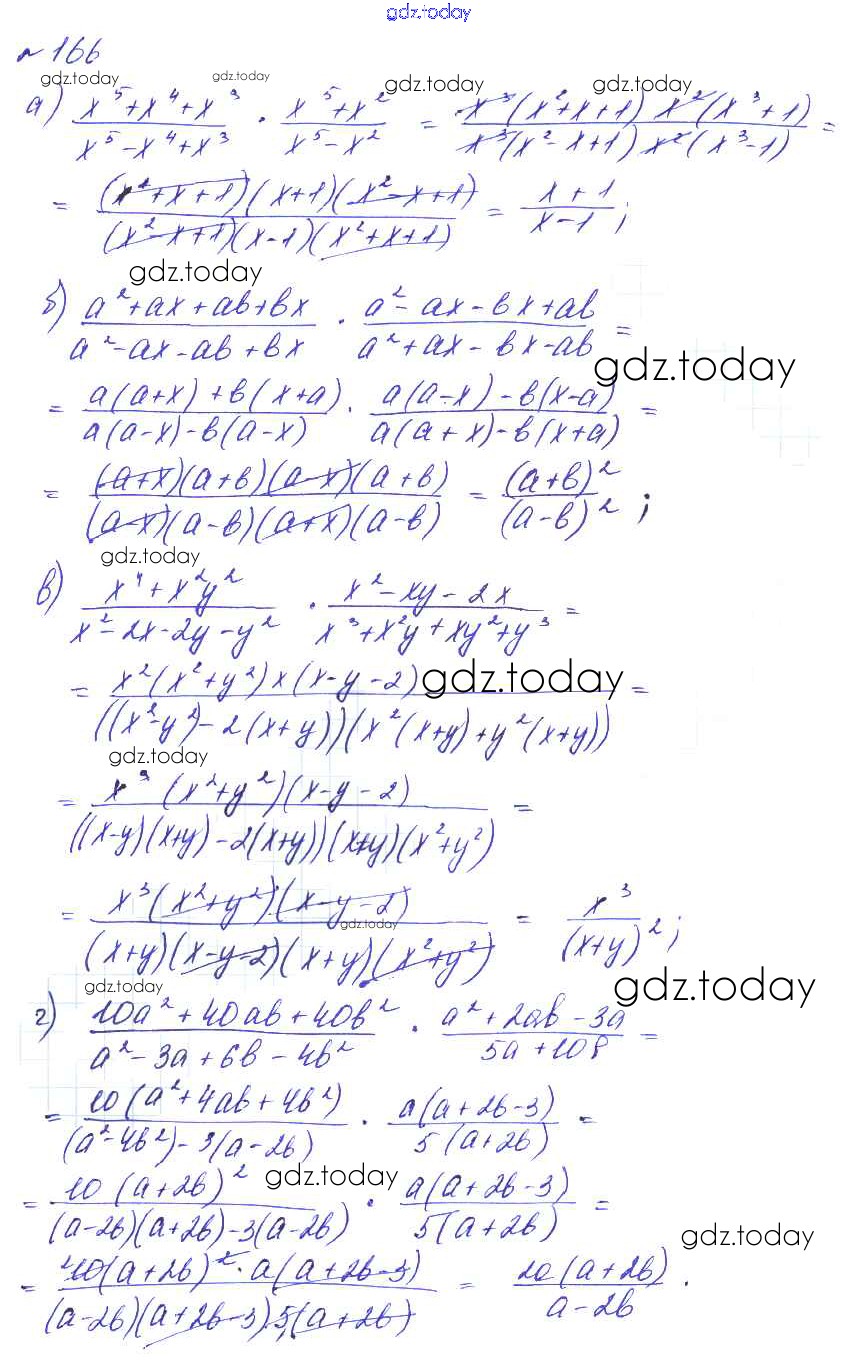 gdz.today
№ 166
gdz.today gdz.today gdz.today gdz.today
а) (x⁵+x⁴+x³)/(x⁵-x⁴+x³) · (x⁵+x²)/(x⁵-x²) = (x³(x²+x+1) x²(x³+1))/(x³(x²-x+1) x²(x³-1)) =
= ((x²+x+1)(x+1)(x²-x+1))/((x²-x+1)(x-1)(x²+x+1)) = (x+1)/(x-1);
gdz.today
б) (a²+ax+ab+bx)/(a²-ax-ab+bx) · (a²-ax-bx+ab)/(a²+ax-bx-ab) =
gdz.today
= (a(a+x)+b(x+a))/(a(a-x)-b(a-x)) · (a(a-x)-b(x-a))/(a(a+x)-b(x+a)) =
= ((a+x)(a+b)(a-x)(a+b))/((a-x)(a-b)(a+x)(a-b)) = (a+b)²/(a-b)²;
gdz.today
в) (x⁴+x²y²)/(x²-2x-2y-y²) · (x²-xy-2x)/(x³+x²y+xy²+y³) =
= (x²(x²+y²)x(x-y-2))/(((x²-y²)-2(x+y))(x²(x+y)+y²(x+y))) =
gdz.today
gdz.today
= (x³(x²+y²)(x-y-2))/(((x-y)(x+y)-2(x+y))(x+y)(x²+y²)) =
= (x³(x²+y²)(x-y-2))/((x+y)(x-y-2)(x+y)(x²+y²)) = x³/(x+y)²;
gdz.today
gdz.today gdz.today
г) (10a²+40ab+40b²)/(a²-3a+6b-4b²) · (a²+2ab-3a)/(5a+10b) =
= (10(a²+4ab+4b²))/((a²-4b²)-3(a-2b)) · (a(a+2b-3))/(5(a+2b)) =
gdz.today
= (10(a+2b)²)/((a-2b)(a+2b)-3(a-2b)) · (a(a+2b-3))/(5(a+2b)) =
gdz.today
= (10(a+2b)²·a(a+2b-3))/((a-2b)(a+2b-3)·5(a+2b)) = (2a(a+2b))/(a-2b).